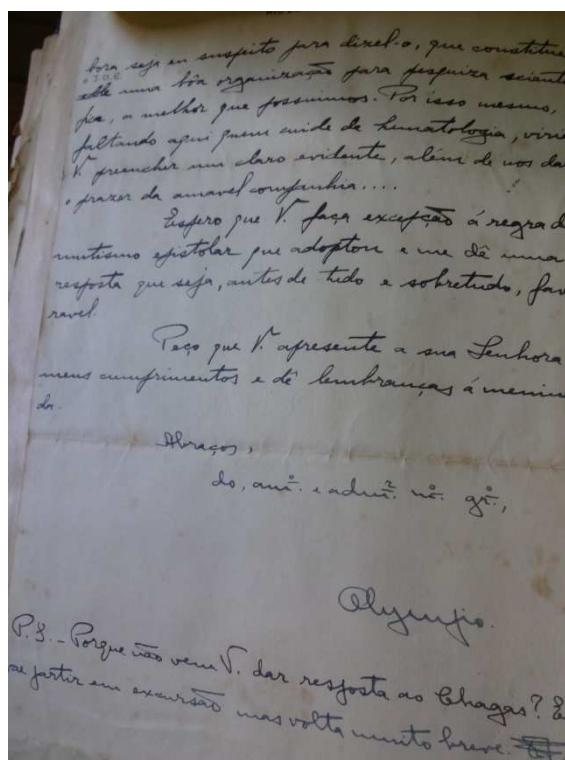 bora seja eu suspeito para dizel-o, que constitue
elle uma bôa organização para pesquiza scienti
fica, a melhor que possuimos. Por isso mesmo,
faltando aqui quem cuide de hematologia, viria
V. preencher um claro evidente, além de nos da
o prazer da amavel companhia....
Espero que V. faça excepção á regra d
mutismo epistolar que adoptou e me dê uma
resposta que seja, antes de tudo e sobretudo, fav
ravel.
Peço que V. apresente a sua Senhora
meus cumprimentos e dê lembranças á menin
da.
Abraços,
do, amº. e admʳ. mº. grº.,
Olympio.
P.S. - Porque não vem V. dar resposta ao Chagas? E
se partir em excursão mas volta muito breve.